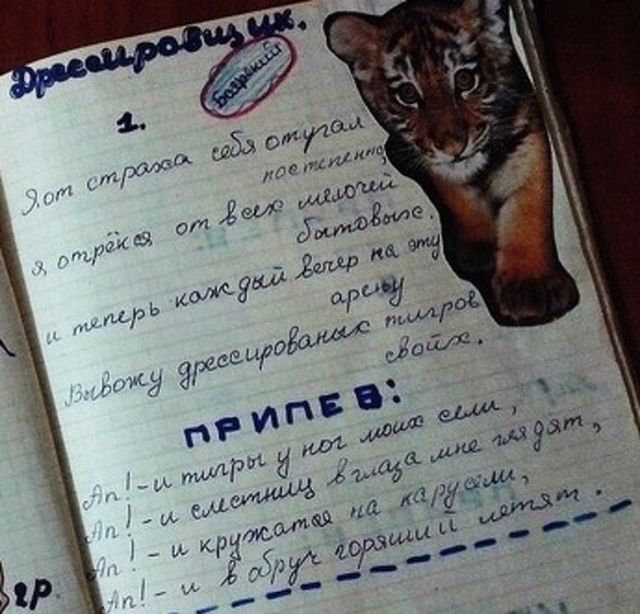 Дрессировщик.
Боярский
1.
Я от страха себя отучал
постепенно,
я отрёкся от всех мелочей
бытовых.
и теперь каждый вечер на эту
арену
Вывожу дрессированых тигров
своих.
ПРИПЕВ:
Ап! - и тигры у ног моих сели,
Ап! - и слестниц в глаза мне глядят,
Ап! - и кружатся на карусели,
Ап! - и в обруч горящий летят.
гр.